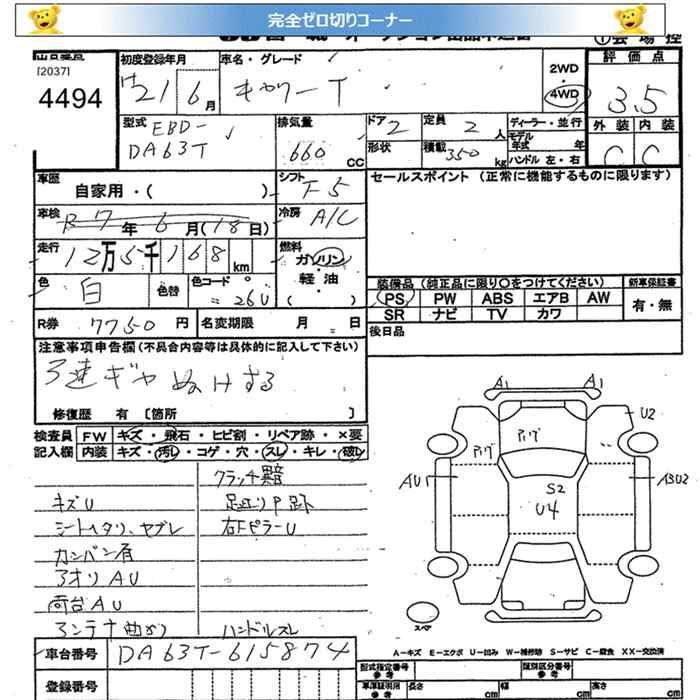 完全ゼロ切りコーナー
[2037]
4494
初度登録年月
21 6月
車名・グレード
キャリーT
2WD
・
4WD
評価点
3.5
外装 内装
C C
型式
EBD-
DA63T
排気量
660 CC
ドア 2
形状
定員 2 人
積載 350 kg
ディーラー・並行
モデル
年式 年
ハンドル 左・右
車歴
自家用・( )
シフト F5
セールスポイント (正常に機能するものに限ります)
車検
R7年6月(18日)
冷房 A/C
走行
12万5千168 km
燃料
ガソリン
・
軽油
( )
色 白
色替
色コード 26U
装備品 (純正品に限り○をつけてください)
新車保証書
PS PW ABS エアB AW
有・無
SR ナビ TV カワ
R券 7750 円
名変期限 月 日
後日品
注意事項申告欄 (不具合内容等は具体的に記入して下さい)
3速ギヤぬけする
修復歴 有 〔箇所 〕
検査員
記入欄
FW キズ・飛石・ヒビ割・リペア跡・×要
内装 キズ・汚レ・コゲ・穴・スレ・キレ・破レ
キズU
シートヘタリ、ヤブレ
カンバン有
アオリAU
荷台AU
アンテナ曲がり
足廻りP跡
右FピラーU
ハンドルスレ
A1 A1
U2
AU1
S2
U4
スペア
A-キズ E-エクボ U-凹み W-補修跡 S-サビ C-腐食 XX-交換済
車台番号 DA63T-615874
登録番号
型式指定番号
参考
類別区分番号
参考
車庫証明用
参考
長さ cm
幅 cm
高さ cm